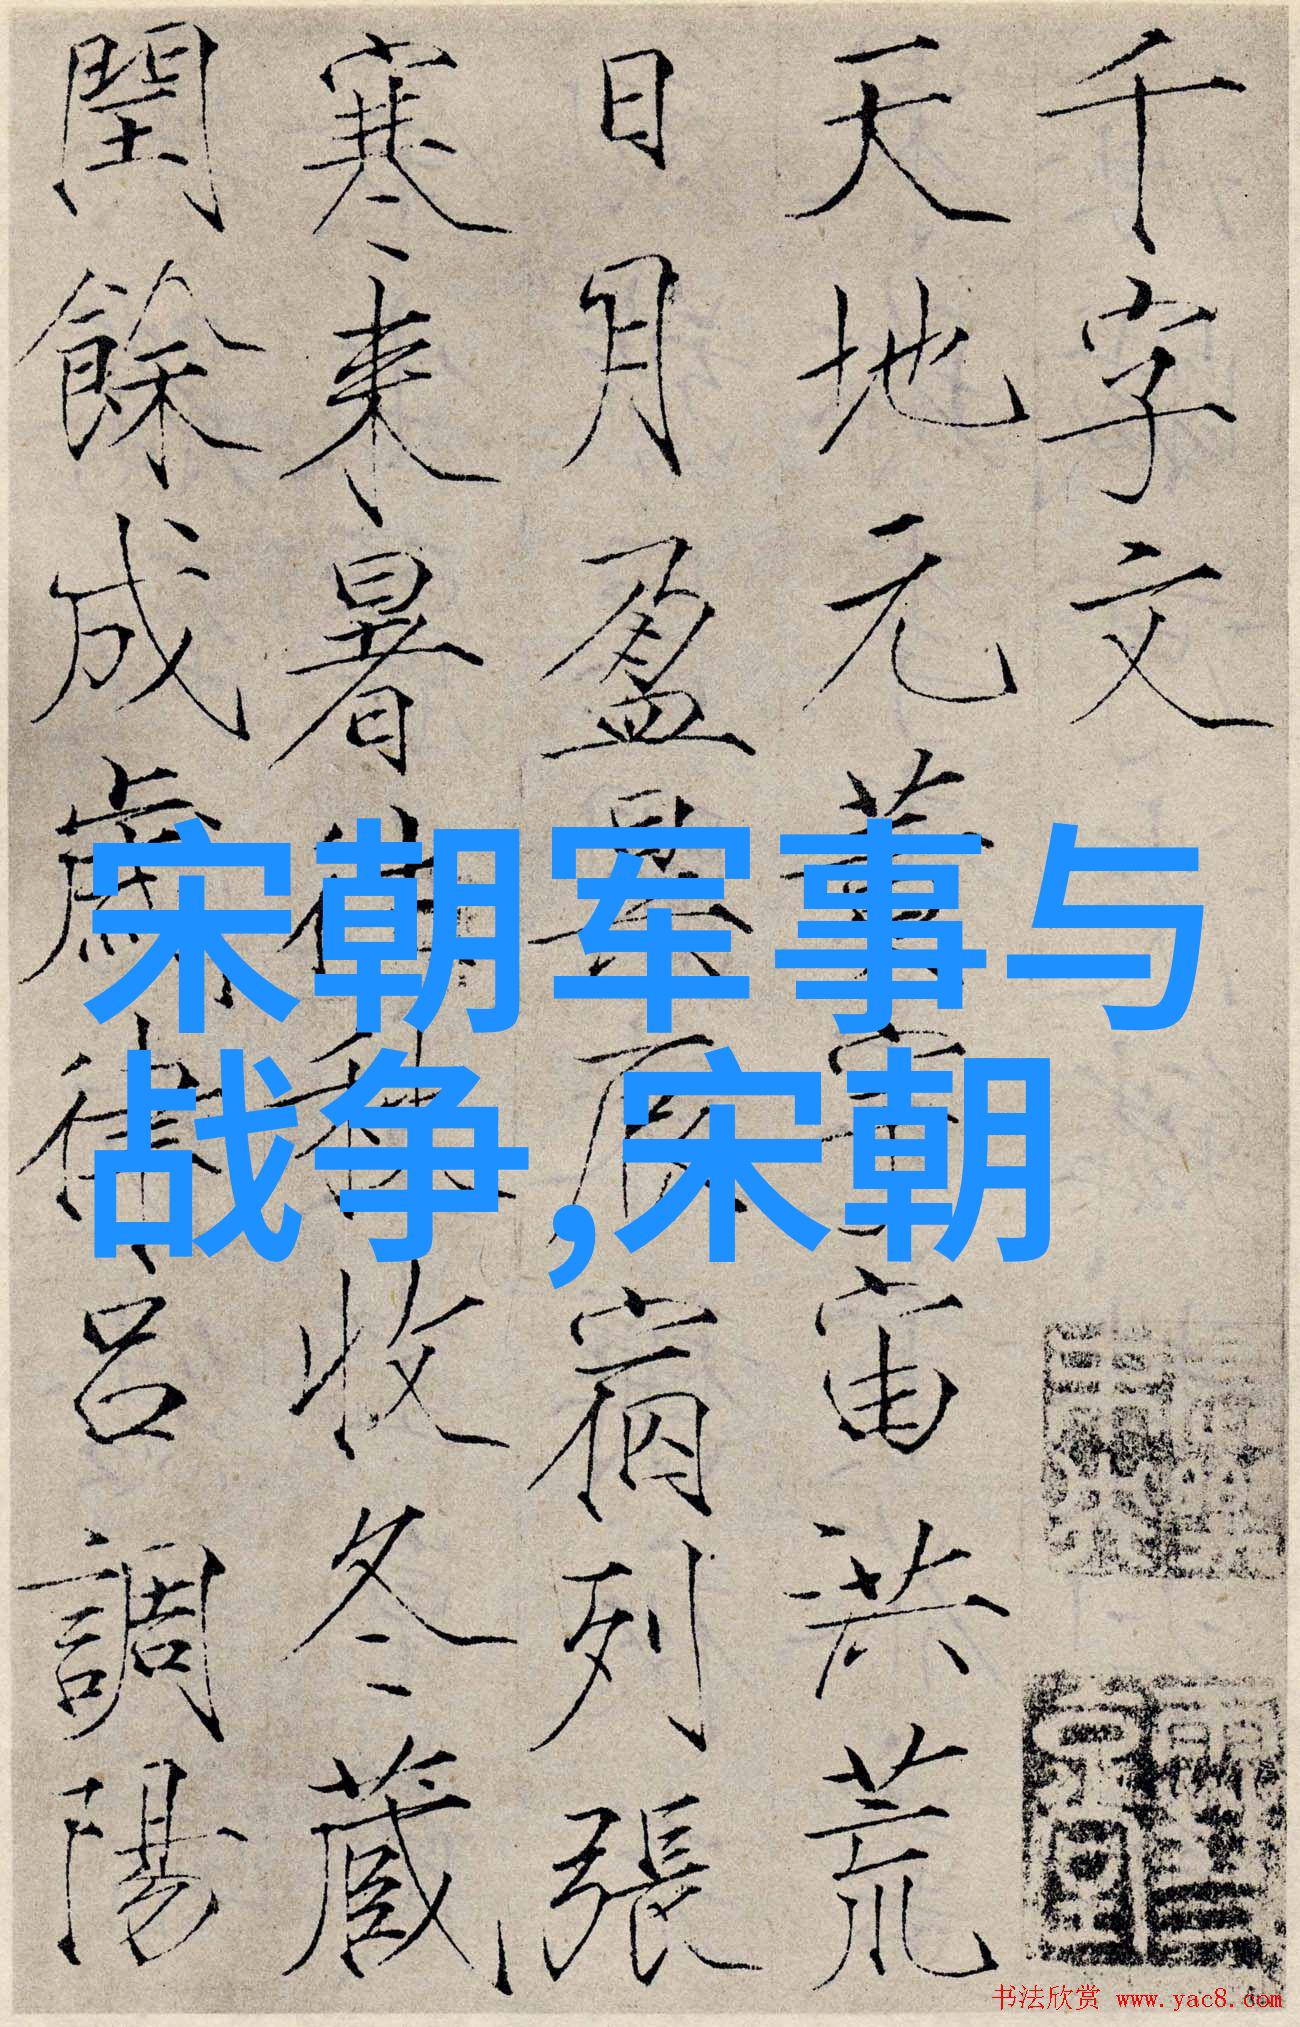 千字文
天地元黃宇宙洪荒
日月盈昃辰宿列張
寒来暑往秋收冬藏
閏餘成歲律呂調陽
宋朝军事与
战争,宋朝
书法欣赏 www.yac8.com